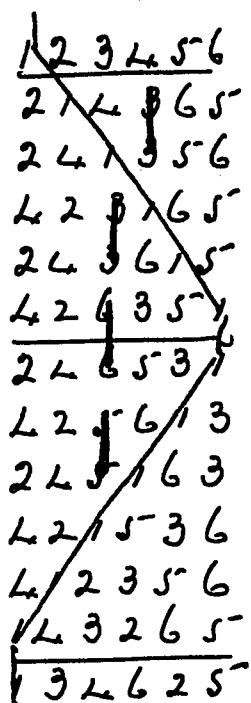 1 2 3 4 5 6
2 1 4 3 6 5
2 4 1 3 5 6
4 2 3 1 6 5
2 4 3 6 1 5
4 2 6 3 5 1
2 4 6 5 3 1
4 2 5 6 1 3
2 4 5 1 6 3
4 2 1 5 3 6
4 1 2 3 5 6
1 4 3 2 6 5
1 3 4 6 2 5